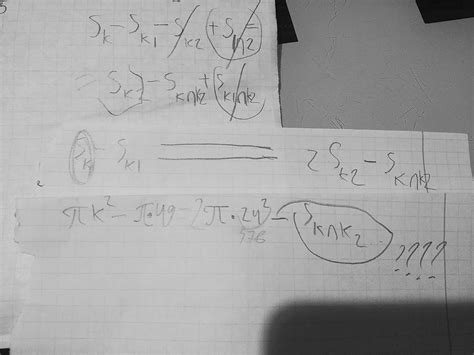 S_K - S_K1 - S_K2 + S_1∩2 =
= S_K2 - S_K∩K2 + S_K1∩K2
S_K - S_K1 = 2S_K2 - S_K∩K2
πK² - π·49 - 2π·24² = S_K∩K2 ????
576